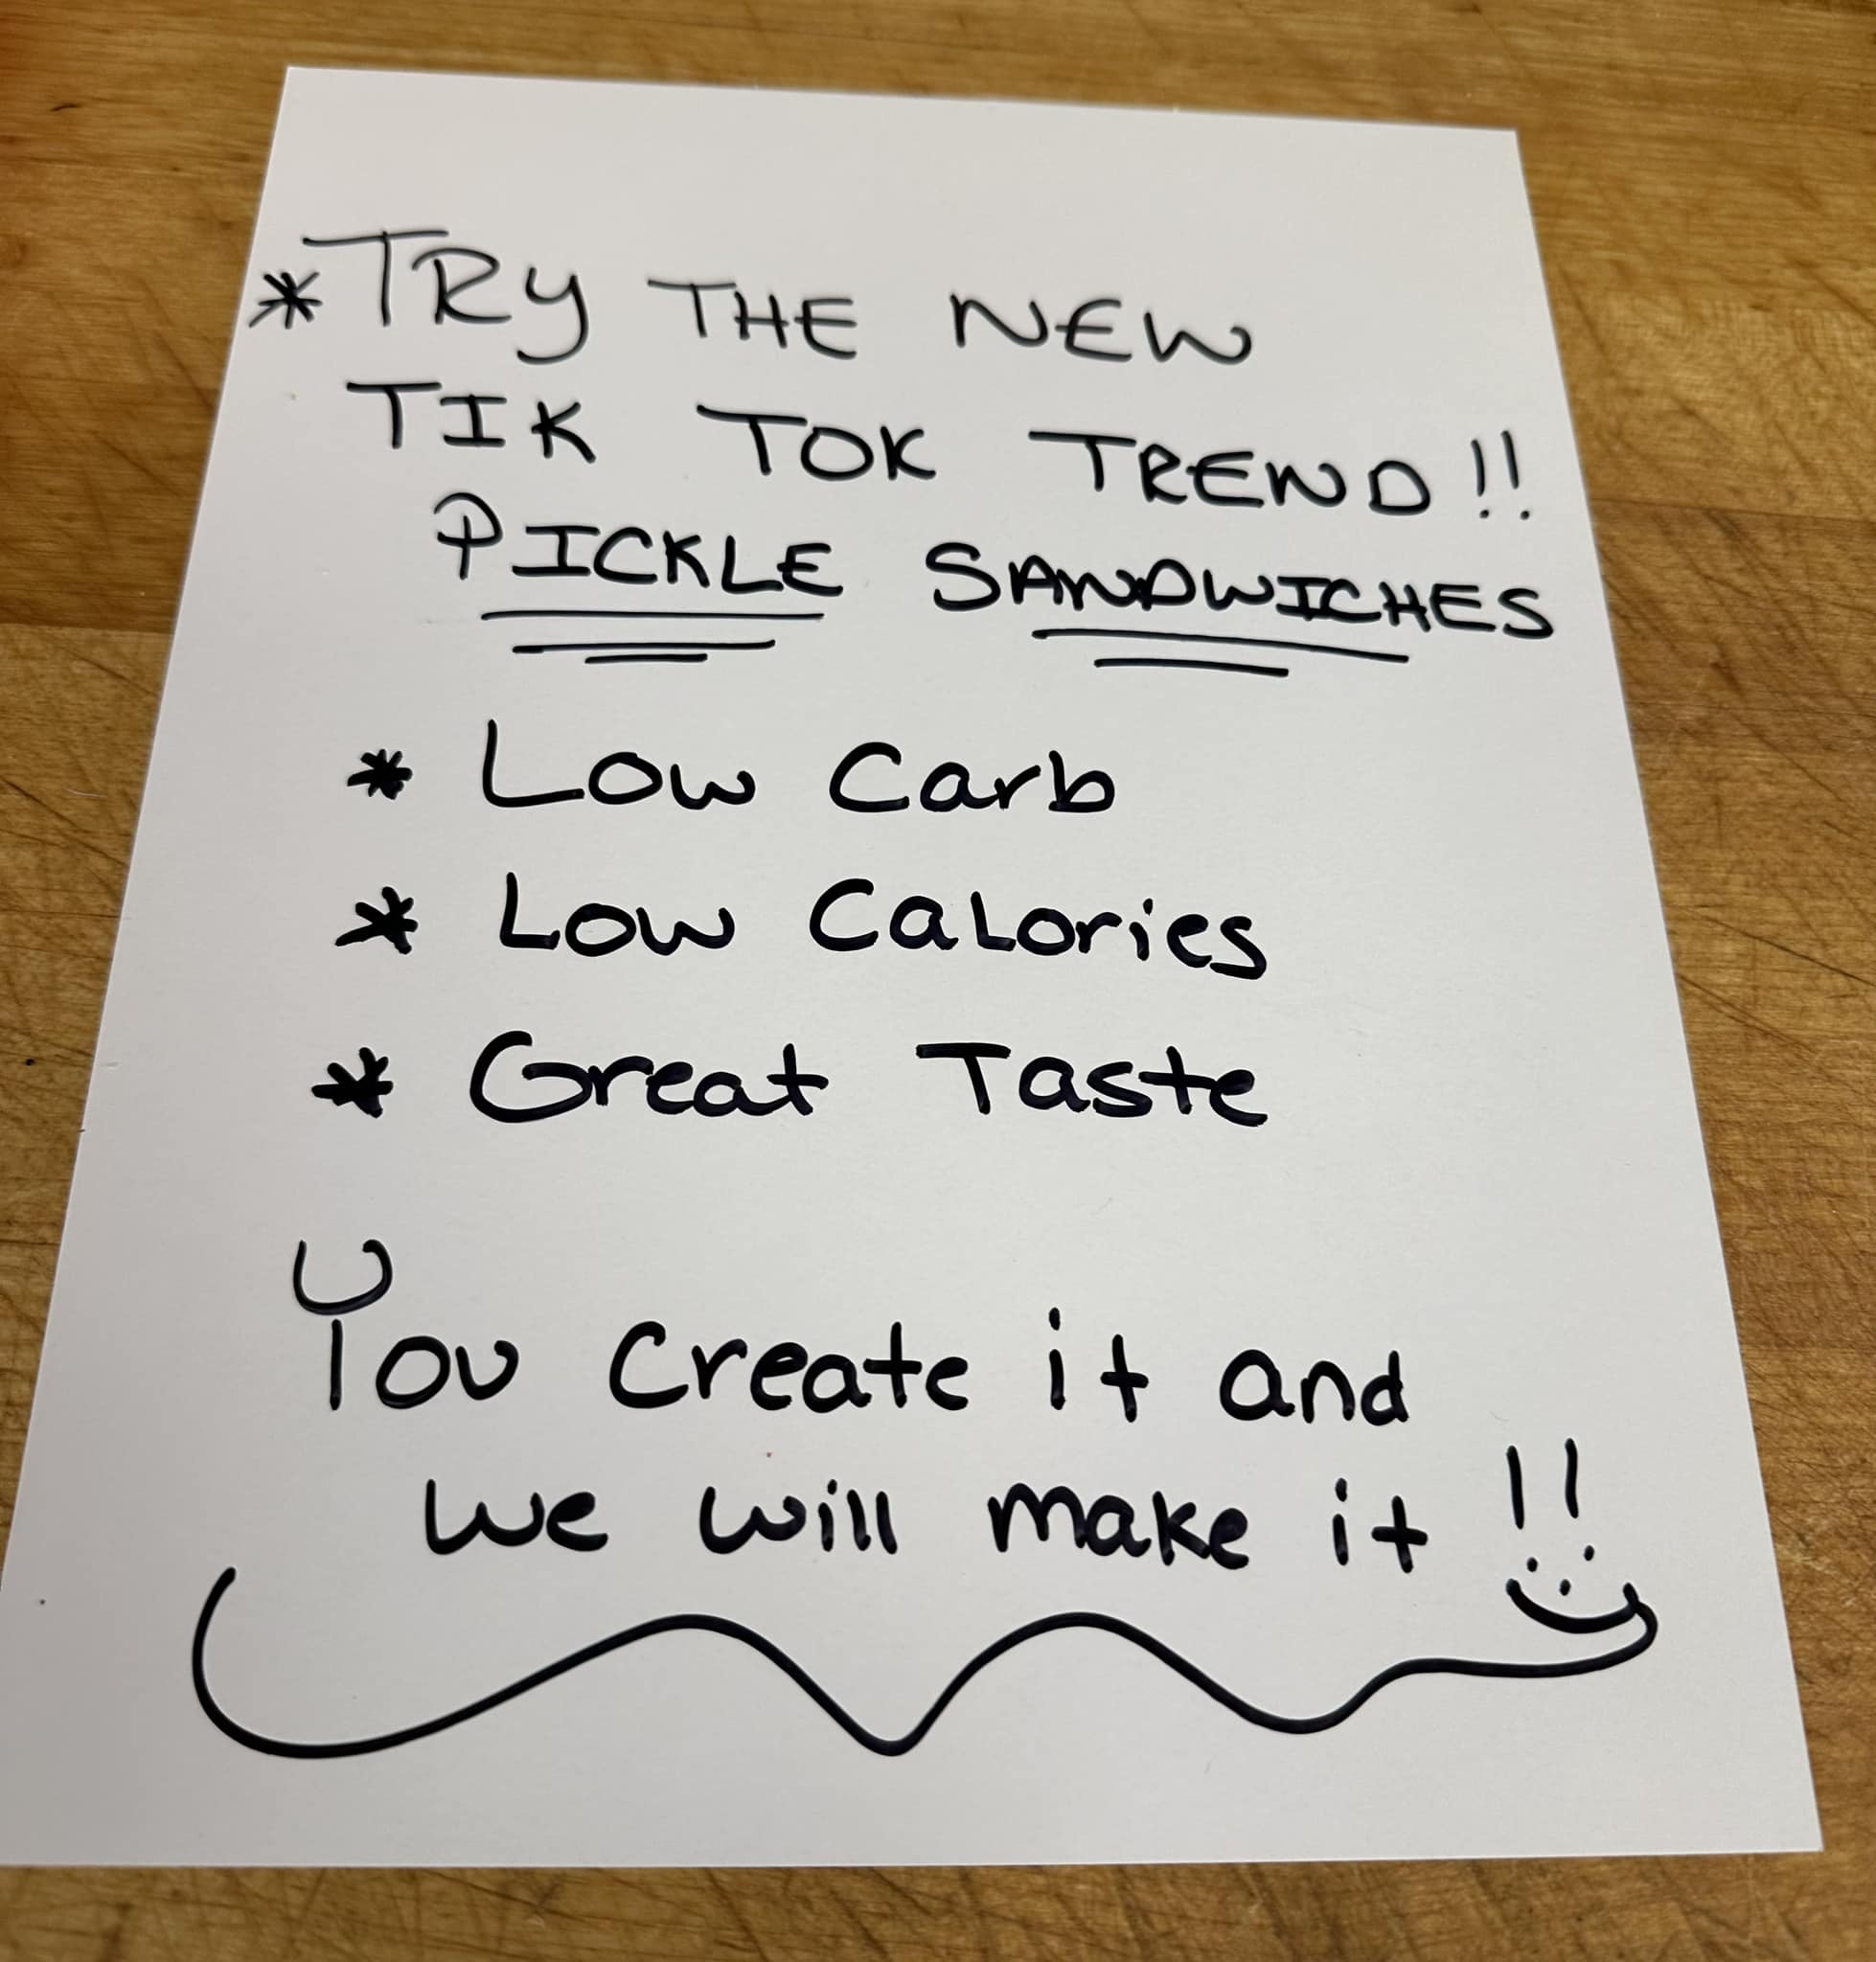 *TRY THE NEW
TIK TOK TREND!!
PICKLE SANDWICHES
* Low Carb
* Low Calories
* Great Taste
You create it and
we will make it !!